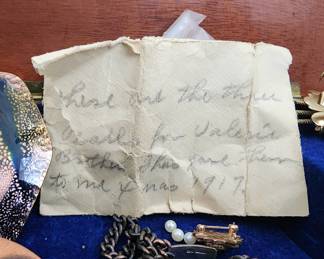 these are the three
for Valerie
Brother Theo gave them
to me Xmas 1917.